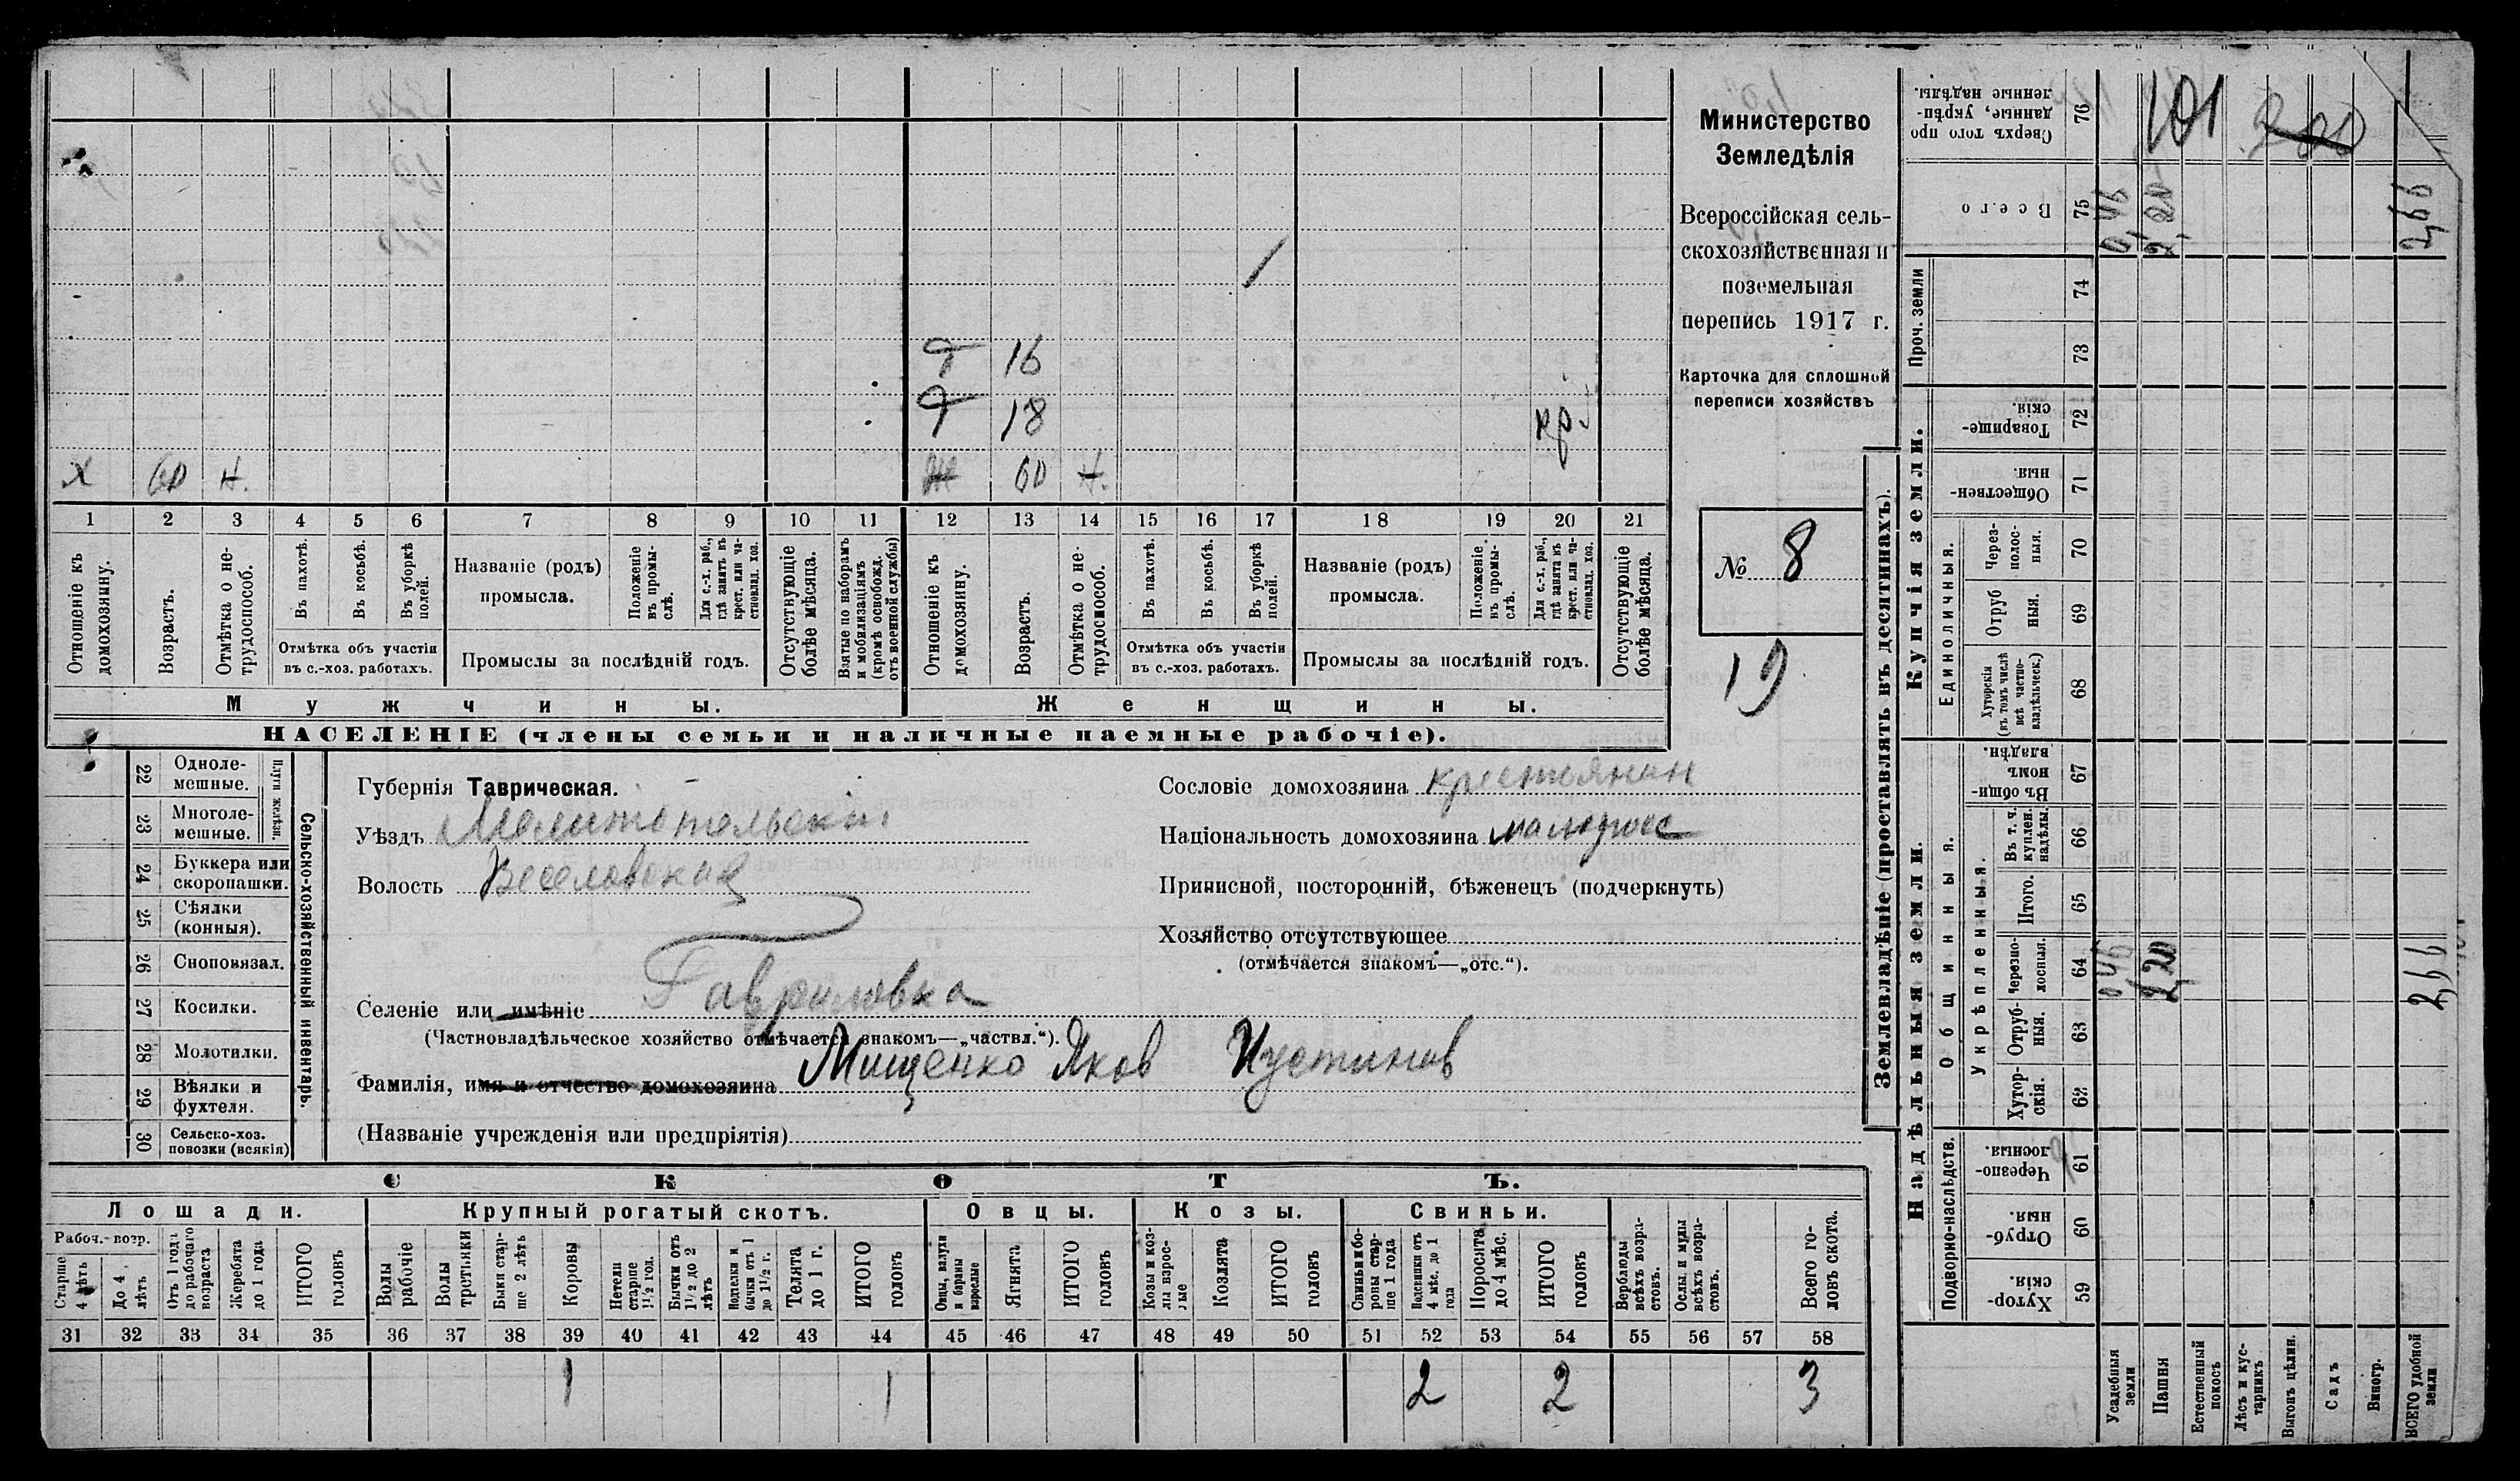 Министерство
Земледѣлія
Всероссійская сель-
скохозяйственная и
поземельная
перепись 1917 г.
Карточка для сплошной
переписи хозяйствъ
№ 8
19
Т 16
Т 18 кр.
Х 60 Н. Ж 60 Н.
1 2 3 4 5 6 7 8 9 10 11 12 13 14 15 16 17 18 19 20 21
Отношеніе къ домохозяину.
Возрастъ.
Отмѣтка о не-трудоспособ.
Въ пахотѣ.
Въ косьбѣ.
Въ уборкѣ полей.
Отмѣтка объ участіи
въ с.-хоз. работахъ.
Названіе (родъ)
промысла.
Положеніе въ промы-слѣ.
Для с.-х. раб., гдѣ занятъ въ крест. или ча-стновлад. хоз.
Промыслы за послѣдній годъ.
Отсутствующіе болѣе мѣсяца.
Взятые по наборамъ и мобилизаціямъ (кромѣ освобожд. отъ военной службы)
Отношеніе къ домохозяину.
Возрастъ.
Отмѣтка о не-трудоспособ.
Въ пахотѣ.
Въ косьбѣ.
Въ уборкѣ полей.
Отмѣтка объ участіи
въ с.-хоз. работахъ.
Названіе (родъ)
промысла.
Положеніе въ промы-слѣ.
Для с.-х. раб., гдѣ занята въ крест. или ча-стновлад. хоз.
Промыслы за послѣдній годъ.
Отсутствующіе болѣе мѣсяца.
Мужчины. Женщины.
НАСЕЛЕНІЕ (члены семьи и наличные наемные рабочіе).
Сельско-хозяйственный инвентарь.
Плуги желѣзн.
22 Одноле-мешные.
23 Многоле-мешные.
24 Буккера или скоропашки.
25 Сѣялки (конныя).
26 Сноповязал.
27 Косилки.
28 Молотилки.
29 Вѣялки и фухтеля.
30 Сельско-хоз. повозки (всякія)
Губернія Таврическая.
Уѣздъ Мелитопольскій
Волость Веселовская
Селеніе или имѣніе Гавриловка
(Частновладѣльческое хозяйство отмѣчается знакомъ—„частвл.“).
Фамилія, имя и отчество домохозяина Мищенко Яков Иустинов
(Названіе учрежденія или предпріятія)
Сословіе домохозяина крестьянин
Національность домохозяина малоросс
Приписной, посторонній, бѣженецъ (подчеркнуть)
Хозяйство отсутствующее
(отмѣчается знакомъ—„отс.“).
СКОТЪ.
Лошади. Крупный рогатый скотъ. Овцы. Козы. Свиньи.
Рабоч. возр.
Старше 4 лѣтъ
До 4 лѣтъ
Отъ 1 года до рабочаго возраста
Жеребята до 1 года
ИТОГО головъ
Волы рабочіе
Волы третьяки
Быки стар-ше 2 лѣтъ
Коровы
Нетели старше 1½ год.
Бычки отъ 1½ до 2 лѣтъ
Подтелки и бычки отъ 1 до 1½ г.
Телята до 1 г.
ИТОГО головъ
Овцы, валухи и бараны взрослые
Ягнята
ИТОГО головъ
Козы и коз-лы взрос-лые
Козлята
ИТОГО головъ
Свиньи и бо-ровы стар-ше 1 года
Подсвинки отъ 4 мѣс. до 1 года
Поросята до 4 мѣс.
ИТОГО головъ
Верблюды всѣхъ возра-стовъ.
Ослы и мулы всѣхъ возра-стовъ.
Всего го-ловъ скота.
31 32 33 34 35 36 37 38 39 40 41 42 43 44 45 46 47 48 49 50 51 52 53 54 55 56 57 58
1 1 2 2 3
Землевладѣніе (проставлять въ десятинахъ).
Надѣльныя земли. Купчія земли. Проч. земли
Подворно-наслѣдств.
Общинныя.
Укрѣпленныя.
Единоличныя.
59 Хутор-скія.
60 Отруб-ныя.
61 Черезпо-лосныя.
62 Хутор-скія.
63 Отруб-ныя.
64 Черезпо-лосныя. 0,46 2,20 2,66
65 Итого.
66 Въ т. ч. куплен. надѣлы.
67 Въ общи-номъ владѣн.
68 Хуторскія (въ томъ числѣ всѣ частно-владѣльческ.)
69 Отруб ныя.
70 Через-полос-ныя.
71 Обществен-ныя.
72 Товарище-скія.
73
74
75 Всего 0,46 2,20 2,66
76 Сверхъ того про данные, укрѣп-ленные надѣлы. 101
Усадебныя земли
Пашня
Естественный покосъ
Лѣсъ и кус-тарникъ
Выгонъ цѣлин.
Садъ
Виногр.
ВСЕГО удобной земли